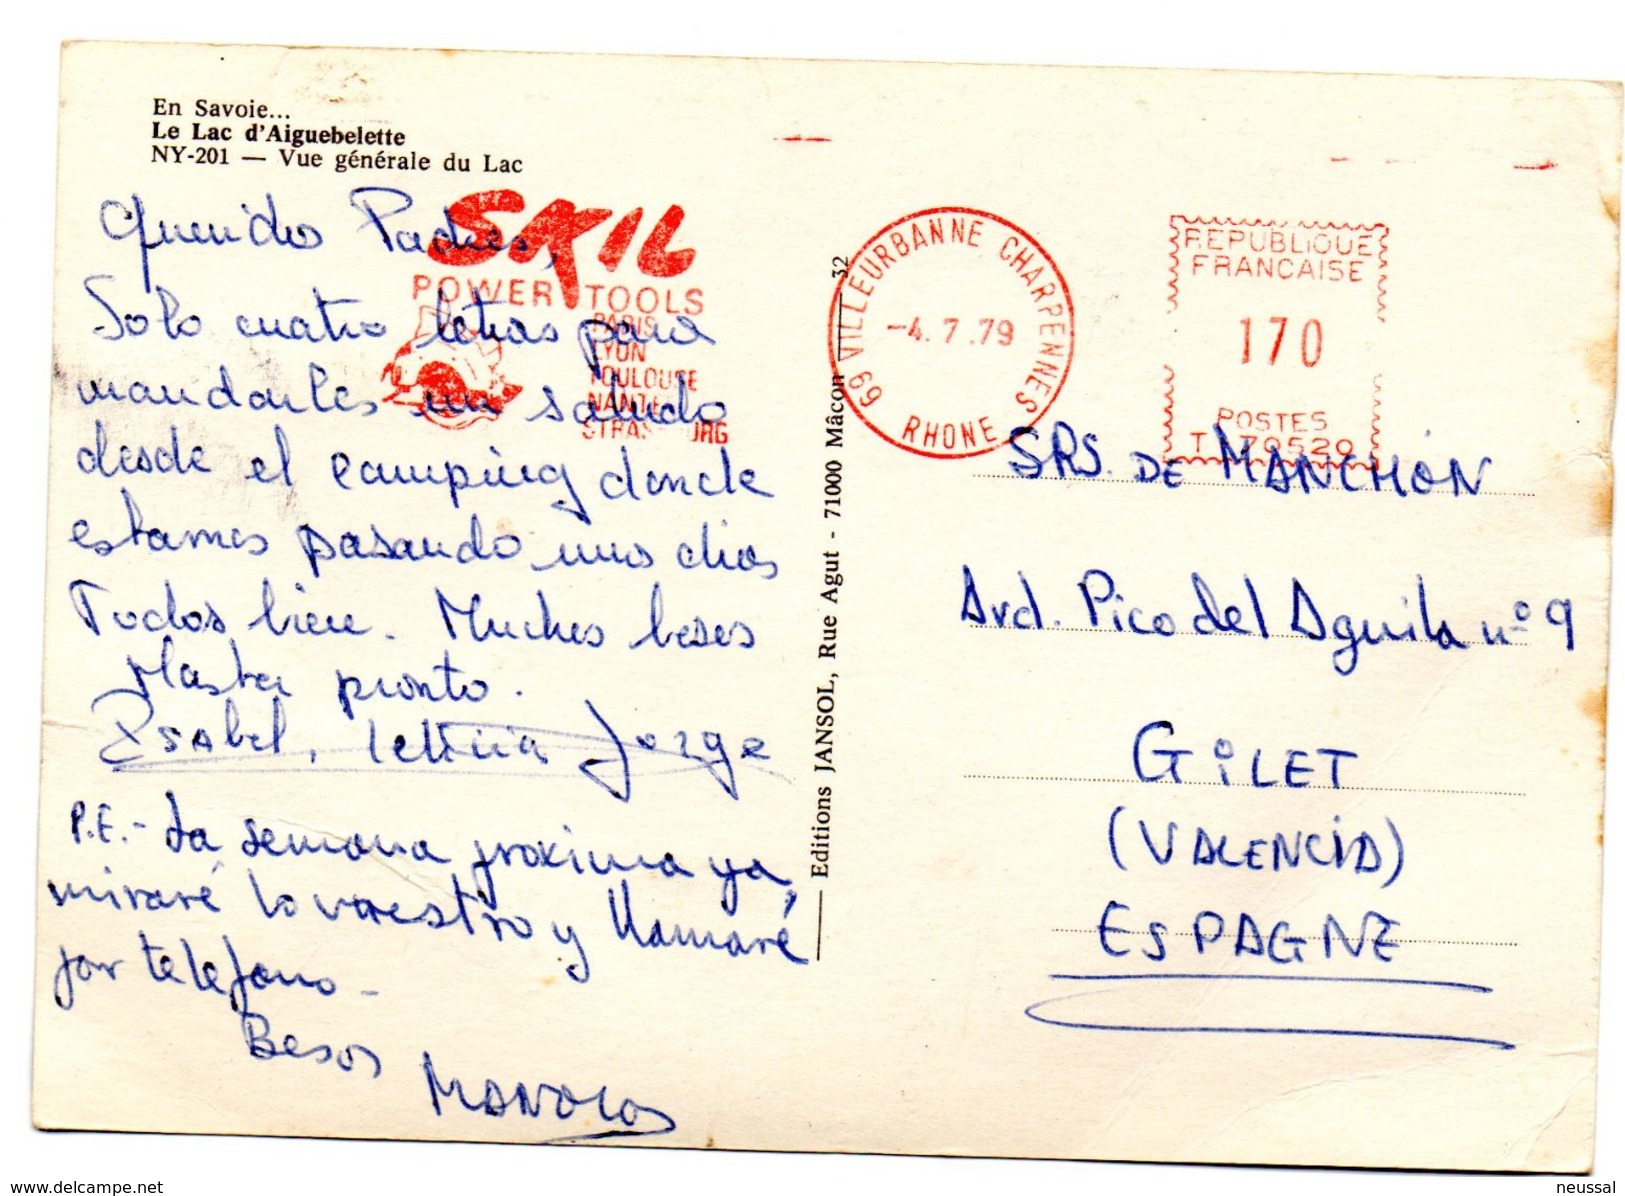 En Savoie...
Le Lac d'Aiguebelette
NY-201 — Vue générale du Lac
Queridos Padres,
Solo cuatro letras para
mandarles un saludo
desde el camping donde
estamos pasando unos dias
Todos bien. Muchos besos
Hasta pronto.
Isabel, Leticia Jorge
P.E.- La semana proxima ya,
miraré lo vuestro y llamaré
por telefono -
Besos
MANOLO
SKIL
POWER TOOLS
PARIS
LYON
TOULOUSE
NANTES
STRASBOURG
Editions JANSOL, Rue Agut - 71000 Mâcon
32
69 VILLEURBANNE CHARPENNES
-4.7.79
RHONE
REPUBLIQUE
FRANCAISE
170
POSTES
T 70520
SRS. DE MANCHÓN
Avd. Pico del Aguila nº 9
GILET
(VALENCIA)
ESPAGNE
www.delcampe.net
neussal